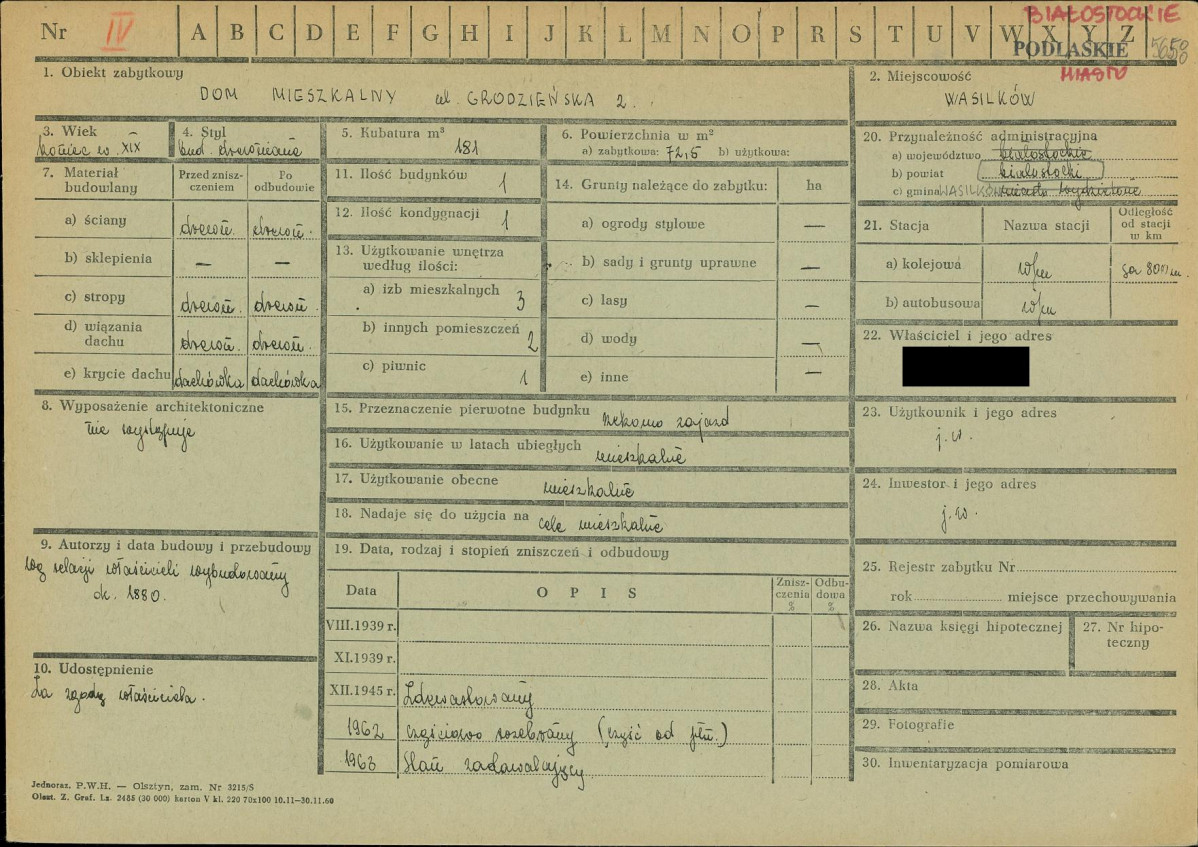 BIAŁOSTOCKIE
Nr IV A B C D E F G H I J K L M N O P R S T U V W X Y Z 5650
PODLASKIE
MIASTO
1. Obiekt zabytkowy
DOM MIESZKALNY ul. GRODZIEŃSKA 2.
2. Miejscowość
WASILKÓW
3. Wiek
koniec w. XIX
4. Styl
bud. drewniane
5. Kubatura m³
181
6. Powierzchnia w m²
a) zabytkowa: 72,5 b) użytkowa:
7. Materiał budowlany
Przed zniszczeniem
Po odbudowie
a) ściany drewn. drewn.
b) sklepienia — —
c) stropy drewn. drewn.
d) wiązania dachu drewn. drewn.
e) krycie dachu dachówka dachówka
8. Wyposażenie architektoniczne
nie występuje
9. Autorzy i data budowy i przebudowy
wg relacji właścicieli wybudowany
ok. 1880.
10. Udostępnienie
Za zgodą właściciela.
11. Ilość budynków 1
12. Ilość kondygnacji 1
13. Użytkowanie wnętrza
według ilości:
a) izb mieszkalnych 3
b) innych pomieszczeń 2
c) piwnic 1
14. Grunty należące do zabytku: ha
a) ogrody stylowe —
b) sady i grunty uprawne —
c) lasy —
d) wody —
e) inne —
15. Przeznaczenie pierwotne budynku rzekomo zajazd
16. Użytkowanie w latach ubiegłych mieszkalne
17. Użytkowanie obecne mieszkalne
18. Nadaje się do użycia na cele mieszkalne
19. Data, rodzaj i stopień zniszczeń i odbudowy
Data OPIS Zniszczenia % Odbudowa %
VIII.1939 r.
XI.1939 r.
XII.1945 r. Zdewastowany
1962 częściowo rozebrany (część od płn.)
1963 Stan zadawalający.
20. Przynależność administracyjna
a) województwo białostockie
b) powiat białostocki
c) gmina WASILKÓW miasto wydzielone
21. Stacja Nazwa stacji Odległość od stacji w km
a) kolejowa w/m ca 800 m.
b) autobusowa w/m
22. Właściciel i jego adres
23. Użytkownik i jego adres
j.w.
24. Inwestor i jego adres
j.w.
25. Rejestr zabytku Nr
rok miejsce przechowywania
26. Nazwa księgi hipotecznej
27. Nr hipoteczny
28. Akta
29. Fotografie
30. Inwentaryzacja pomiarowa
Jednoraz. P.W.H. — Olsztyn, zam. Nr 3215/S
Olszt. Z. Graf. Lz. 2485 (30 000) karton V kl. 220 70x100 10.11—30.11.60